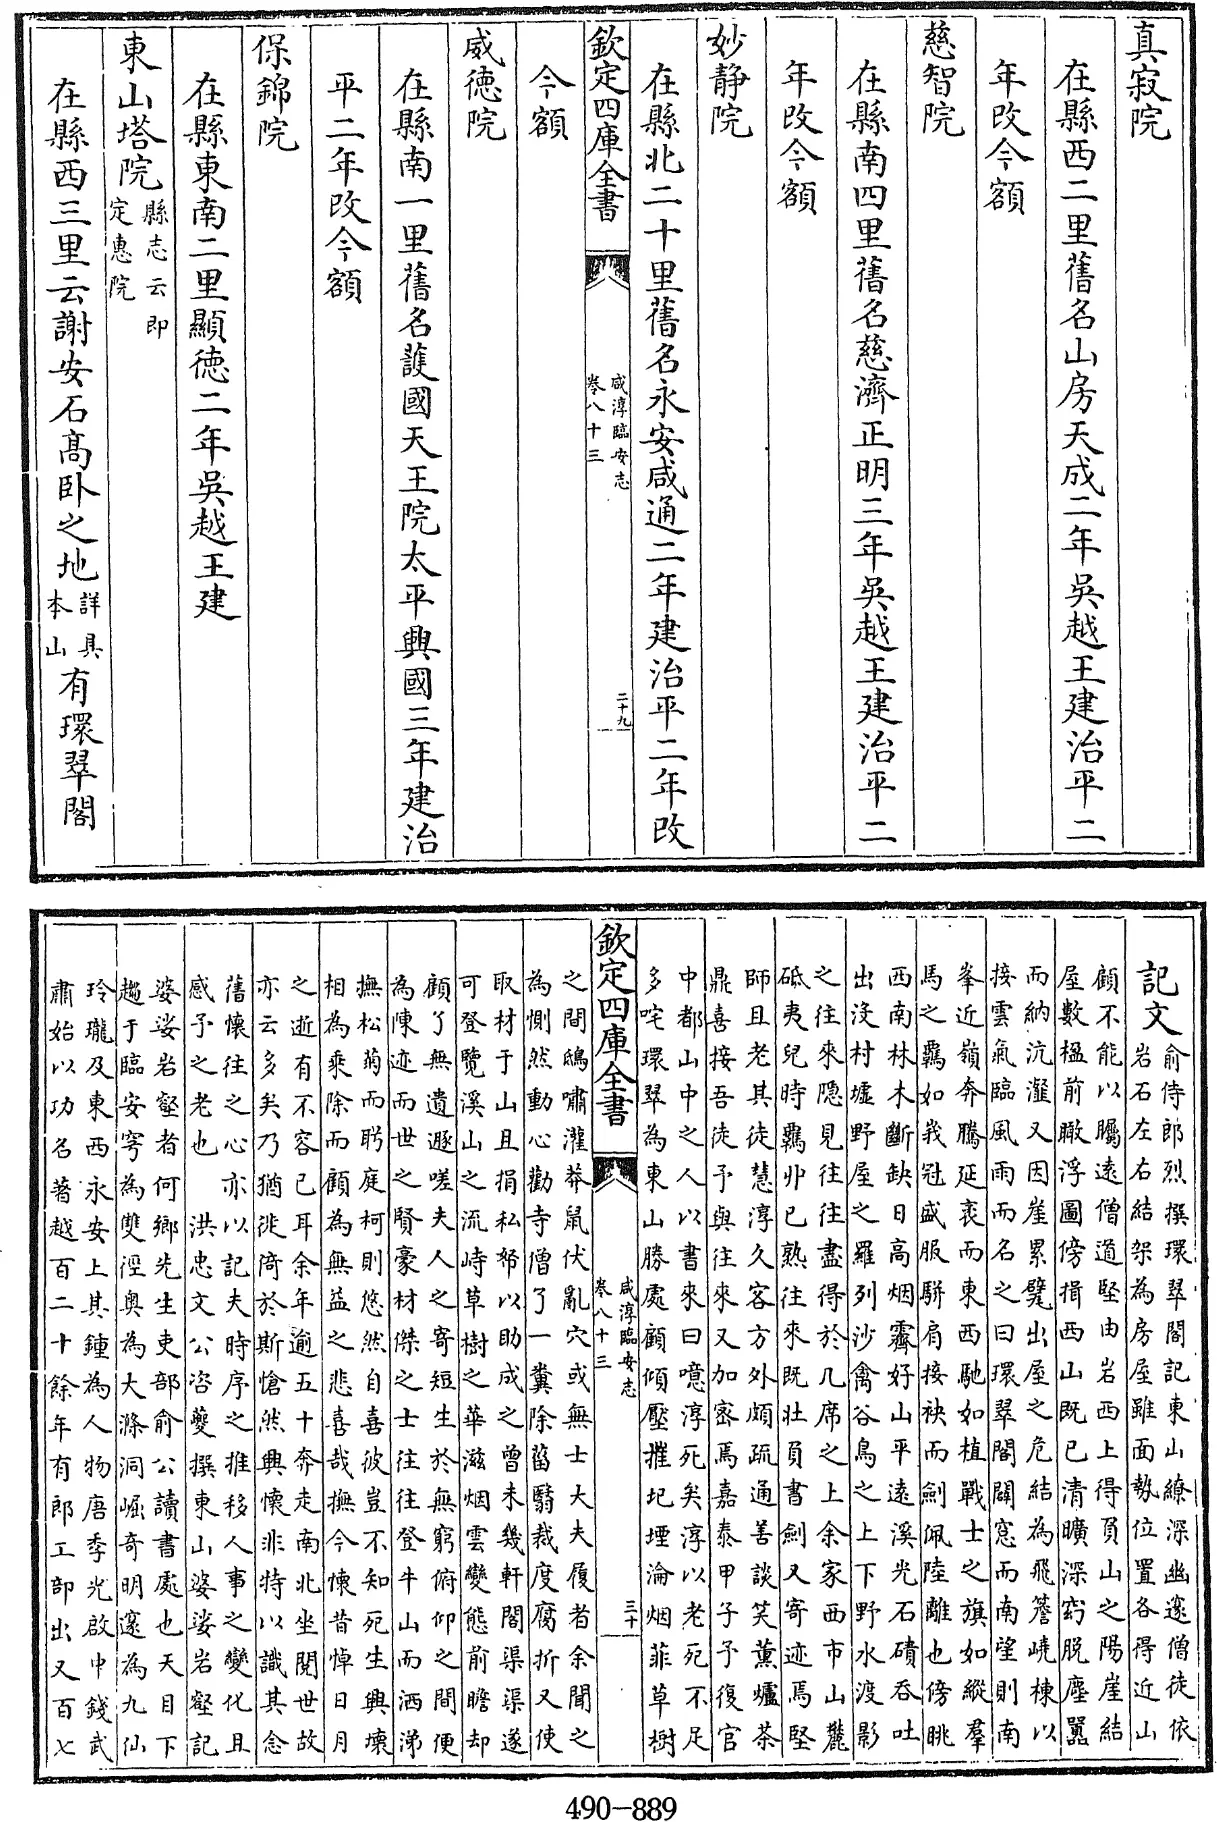 真寂院
在縣西二里舊名山房天成二年吳越王建治平二
年改今額
慈智院
在縣南四里舊名慈濟正明三年吳越王建治平二
年改今額
妙静院
在縣北二十里舊名永安咸通二年建治平二年改
欽定四庫全書
咸淳臨安志
卷八十三
二十九
今額
威德院
在縣南一里舊名護國天王院太平興國三年建治
平二年改今額
保錦院
在縣東南二里顯德二年吳越王建
東山塔院縣志云即
定惠院
在縣西三里云謝安石高卧之地詳具
本山有環翠閣
記文俞侍郎烈撰環翠閣記東山繚深幽邃僧徒依
岩石左右結架為房屋雖面勢位置各得近山
顧不能以矚遠僧道堅由岩西上得負山之陽崖結
屋數楹前瞰浮圖傍揖西山既已清曠深窈脱塵囂
而納沆瀣又因崖累甓出屋之危結為飛簷嶢棟以
接雲氣臨風雨而名之曰環翠閣闢窻而南望則南
峯近嶺奔騰延袤而東西馳如植戰士之旗如縱羣
馬之羈如我冠盛服駢肩接袂而劍佩陸離也傍眺
西南林木斷缺日高烟霽好山平遠溪光石磧吞吐
出没村墟野屋之羅列沙禽谷鳥之上下野水渡影
之往來隠見往往盡得於几席之上余家西市山麓
砥夷兒時羈丱已熟往來既壯負書劍又寄迹焉堅
師且老其徒慧淳久客方外頗疏通善談笑薰爐茶
鼎喜接吾徒予與往來又加密焉嘉泰甲子予復官
中都山中之人以書來曰噫淳死矣淳以老死不足
多咤環翠為東山勝處顧傾壓摧圯堙淪烟菲草樹
欽定四庫全書
咸淳臨安志
卷八十三
三十
之間鴟嘯灌莽鼠伏亂穴或無士大夫履者余聞之
為惻然動心勸寺僧了一糞除菑翳裁度腐折又使
取材于山且捐私帑以助成之曾未幾軒閣渠渠遂
可登覽溪山之流峙草樹之華滋烟雲變態前瞻却
顧了無遺遯嗟夫人之寄短生於無窮俯仰之間便
為陳迹而世之賢豪材傑之士往往登牛山而洒涕
撫松菊而眄庭柯則悠然自喜彼豈不知死生興壞
相為乘除而顧為無益之悲喜哉撫今懷昔悼日月
之逝有不容已耳余年逾五十奔走南北坐閱世故
亦云多矣乃猶徙倚於斯愴然興懷非特以識其念
舊懷往之心亦以記夫時序之推移人事之變化且
感予之老也　洪忠文公咨夔撰東山婆娑岩壑記
婆娑岩壑者何鄉先生吏部俞公讀書處也天目下
趨于臨安穹為雙徑奥為大滌洞崛奇明邃為九仙
玲瓏及東西永安上其鍾為人物唐季光啟中錢武
肅始以功名著越百二十餘年有郎工部出又百七
490-889